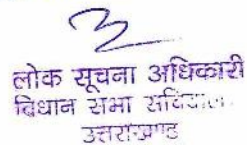 लोक सूचना अधिकारी
विधान सभा
उत्तराखण्ड